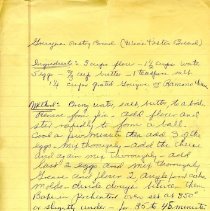 Gruyere Pastry Bread (Mexic Easter Bread)
Ingredients: 3 cups flour - 1 1/2 cups water
5 eggs - 3/4 cup butter - 1 teaspoon salt
1 1/2 cups grated Gruyere or Romano cheese
Method: Bring water, salt, butter to a boil.
Remove from fire - add flour and
stir rapidly to form a ball.
Cool a few minutes then add 3 of the
eggs. Mix thoroughly - add the cheese
and again mix thoroughly - add
last 2 eggs and mix thoroughly.
Grease and flour 2 angel food cake
molds - divide dough between them
Bake in preheated oven set at 350°
or slightly under - for 35 to 45 minutes